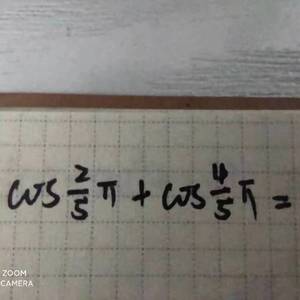 cos 2/5 π + cos 4/5 π =
ZOOM
CAMERA